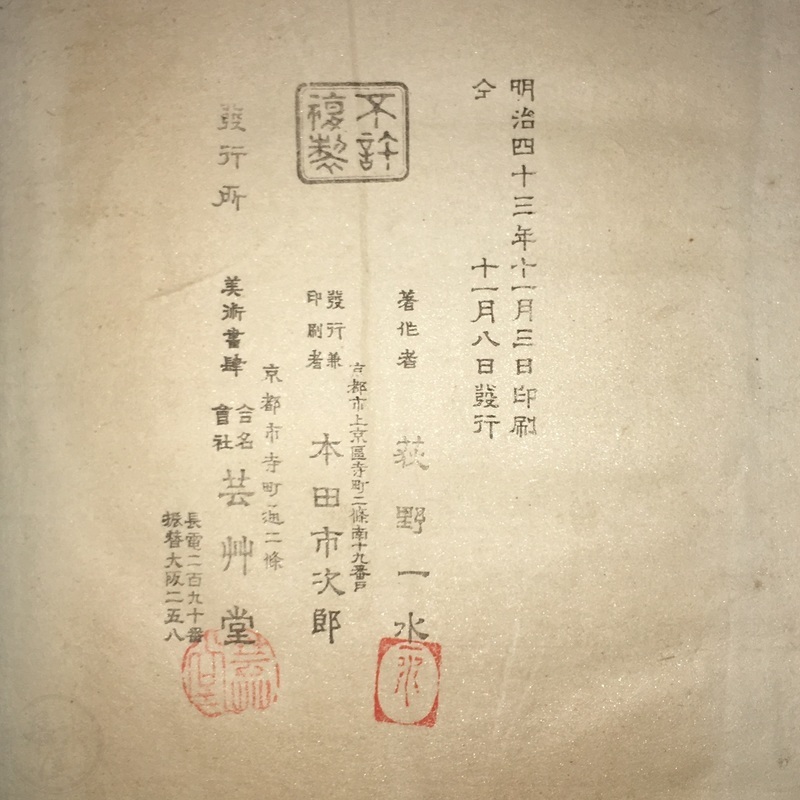 明治四十三年十一月三日印刷
仝　　　　　十一月八日發行
著作者　荻野一水
不許
複製
京都市上京區寺町二條南十九番戶
發行兼
印刷者
本田市次郎
京都市寺町通二條
發行所
美術書肆
合名
會社
芸艸堂
長電二百九十番
振替大阪二五八